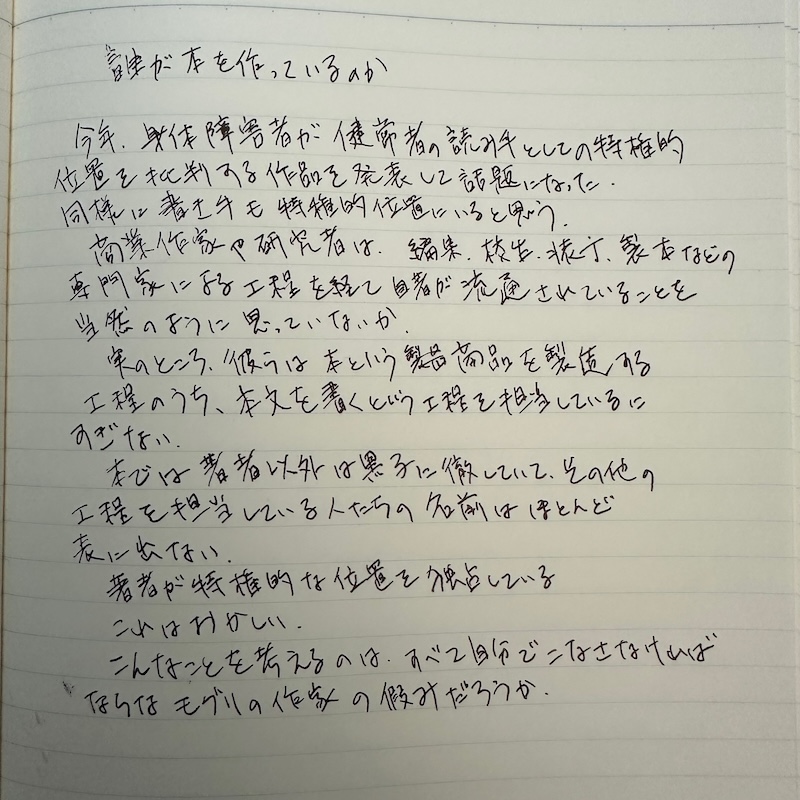 誰が本を作っているのか
今年、身体障害者が健常者の読み手としての特権的
位置を批判する作品を発表して話題になった。
同様に書き手も特権的位置にいると思う。
商業作家や研究者は、編集、校正、装丁、製本などの
専門家による工程を経て自著が流通されていることを
当然のように思っていないか。
実のところ、彼らは本という製品商品を製造する
工程のうち、本文を書くという工程を担当しているに
すぎない。
本では著者以外は黒子に徹していて、その他の
工程を担当している人たちの名前はほとんど
表に出ない。
著者が特権的な位置を独占している
これはおかしい。
こんなことを考えるのは、すべて自分でこなさなければ
ならなモグリの作家の僻みだろうか。